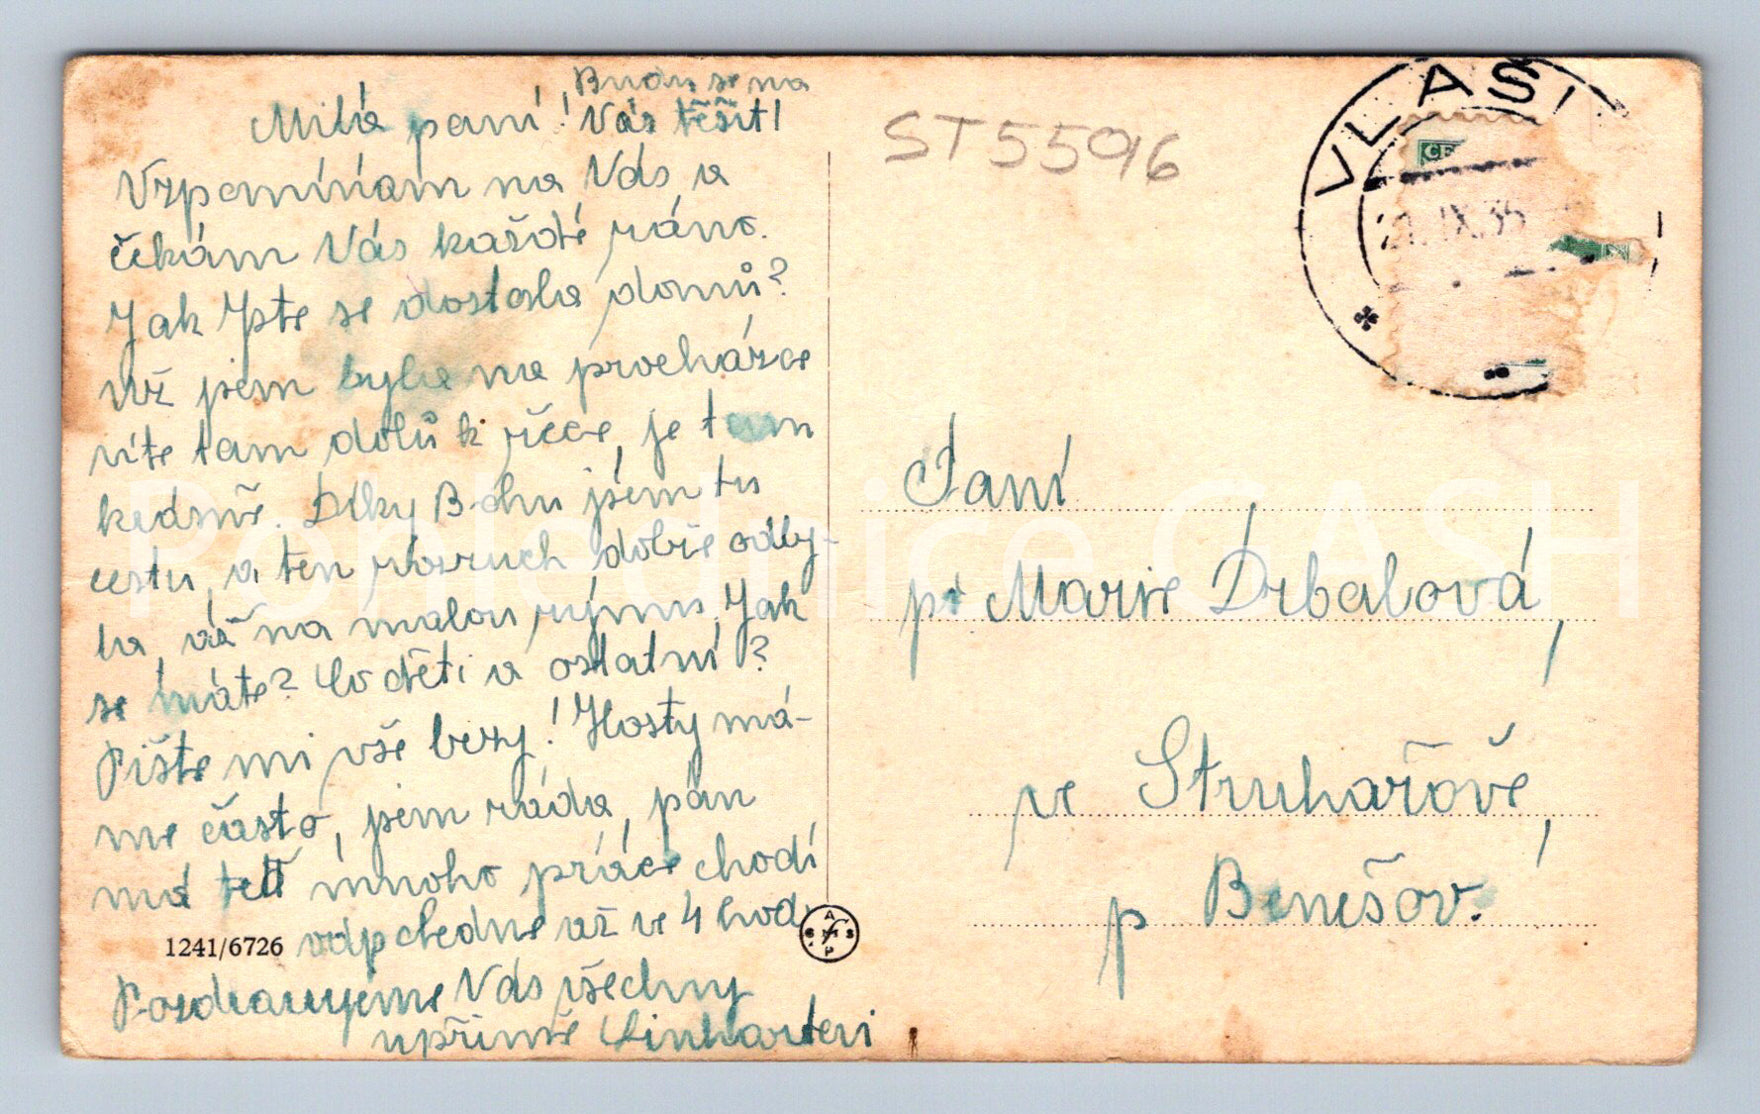 Budu se na
Milá paní! Vás těšit!
Vzpomínám na Vás a
čekám Vás každé ráno.
Jak Jste se dostala domů?
Už jsem byla na procházce
víte tam dolů k řéce, je tam
krásně. Díky Bohu jsem tu
cestu, a ten rozruch dobře odby-
la, až na malou rýmu. Jak
se máte? Co děti a ostatní?
Pište mi vše brzy! Hosty má-
me často, jsem ráda, pán
má teď mnoho práce chodí
odpoledne až ve 4 hod.
Pozdravujeme Vás všechny
upřímně Linhartovi
1241/6726
ST5596
VLAŠI
21.IX.35
Paní
pí Marie Drbalová,
ve Struhařově,
p Benešov.
Pohlednice CASH